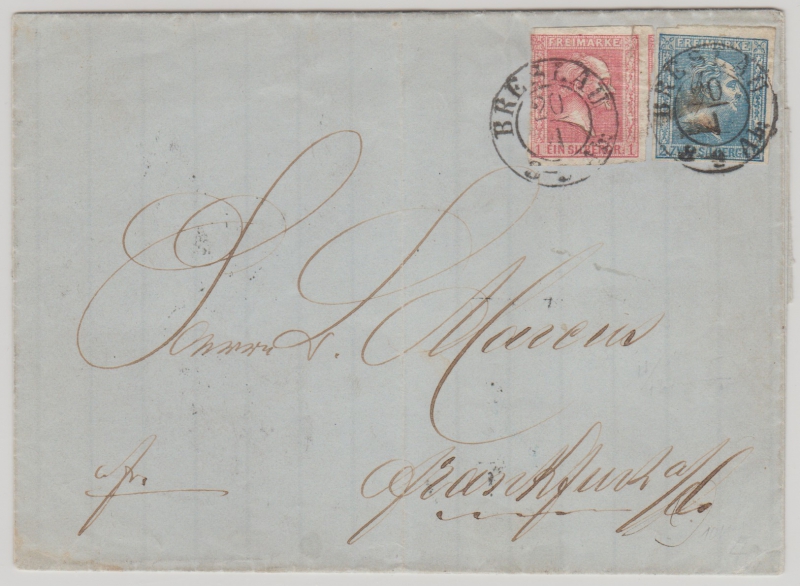 FREIMARKE
1 EIN SILBERGR. 1
FREIMARKE
2 ZWEI SILBERGR.
BRESLAU
20
1
BRESLAU
20
1
Herrn S. Marcus
fr.
Frankfurt a/O